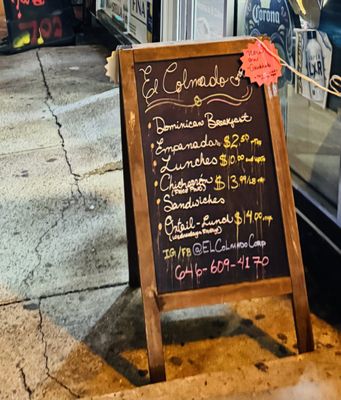 Corona
El Colmado
Dominican Breakfast
Empanadas $2.50
Lunches $10.00 and up
Chicharrón $13.99 LB
(Fried Pork)
Sandwiches
Oxtail-Lunch $14.00
(Wednesdays, Friday)
IG/FB @ElColmadoCorp
646-609-4170